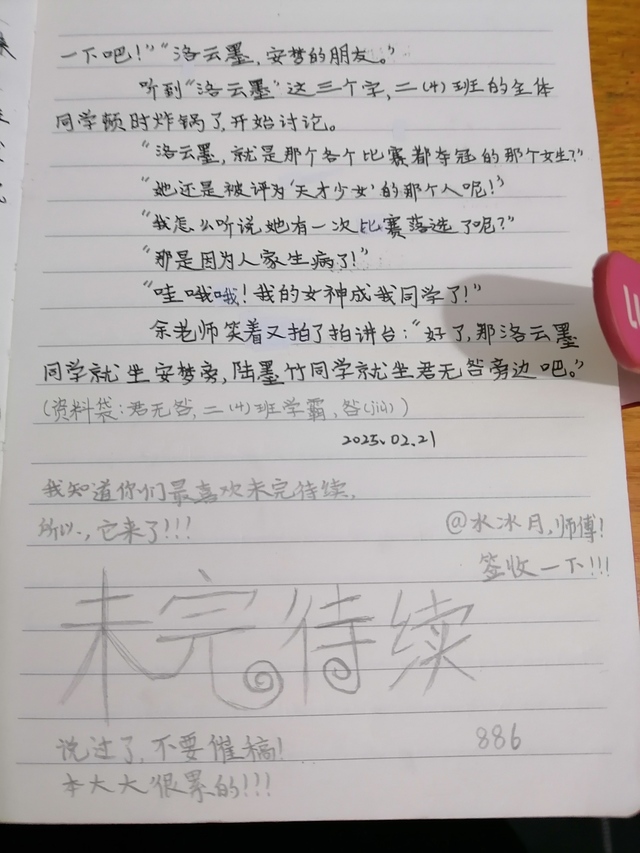 一下吧！”“洛云墨，安梦的朋友。”
听到“洛云墨”这三个字，二（4）班的全体
同学顿时炸锅了，开始讨论。
“洛云墨，就是那个各个比赛都夺冠的那个女生？”
“她还是被评为‘天才少女’的那个人呢！”
“我怎么听说她有一次比赛落选了呢？”
“那是因为人家生病了！”
“哇哦哦！我的女神成我同学了！”
余老师笑着又拍了拍讲台：“好了，那洛云墨
同学就坐安梦旁，陆墨竹同学就坐君无咎旁边吧。”
（资料袋：君无咎，二（4）班学霸，咎（jiù））
2025.02.21
我知道你们最喜欢未完待续，
所以，它来了！！！
@水冰月，师傅！
签收一下！！！
未完待续
说过了，不要催稿！
886
本大大很累的！！！